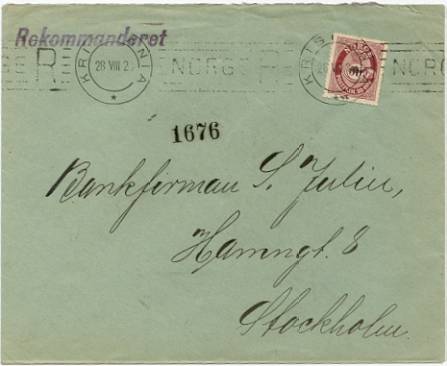 Rekommanderet
KRISTIANIA 28 VIII 2 NORGE KRIS NORGE
NORGE
1676
Bankfirman S. Julin,
Hamngt. 8
Stockholm.